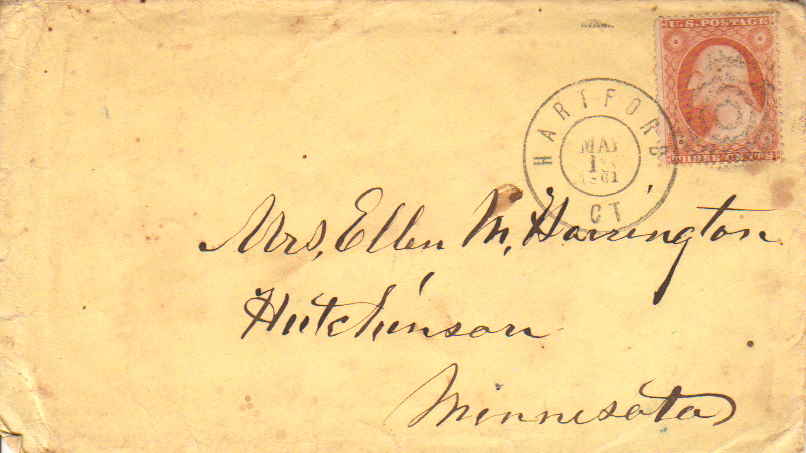 U.S. POSTAGE
THREE CENTS
HARTFORD
MAY
1861
CT
Mrs, Ellen M, Harrington
Hutchinson
Minnesota